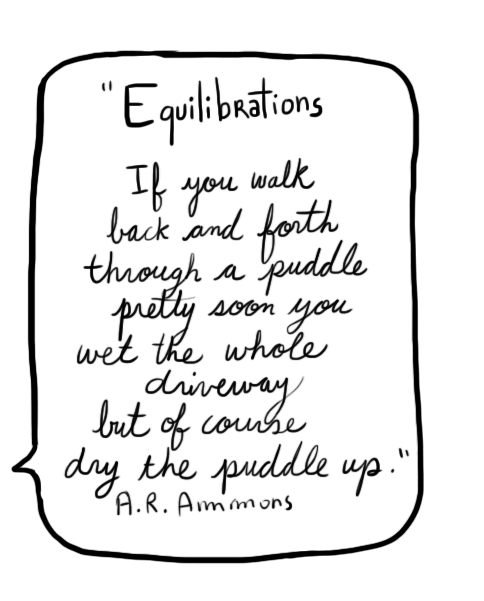 "Equilibrations
If you walk
back and forth
through a puddle
pretty soon you
wet the whole
driveway
but of course
dry the puddle up."
A.R. Ammons